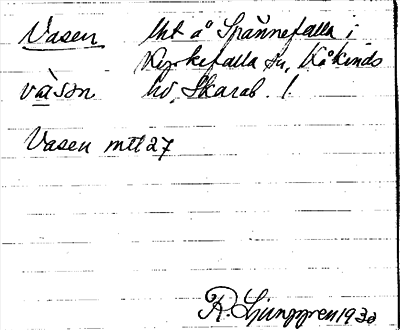 Vasen lht å Spånnefalla i
Kyrkefalla sn, Kåkinds
våsən hd, Skarab. l
Vasen mtl 27
R. Ljunggren 1930